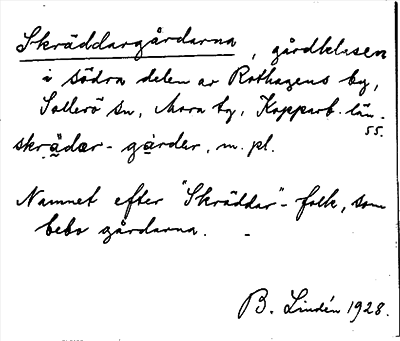 Skräddargårdarna, gårdklasen
i södra delen av Rothagens by,
Sollerö sn, Mora tg, Kopparb. län.
55.
skrä̯dær-gårder, m. pl.
Namnet efter "Skräddar"-folk, som
bebo gårdarna. -
B. Lindén 1928.